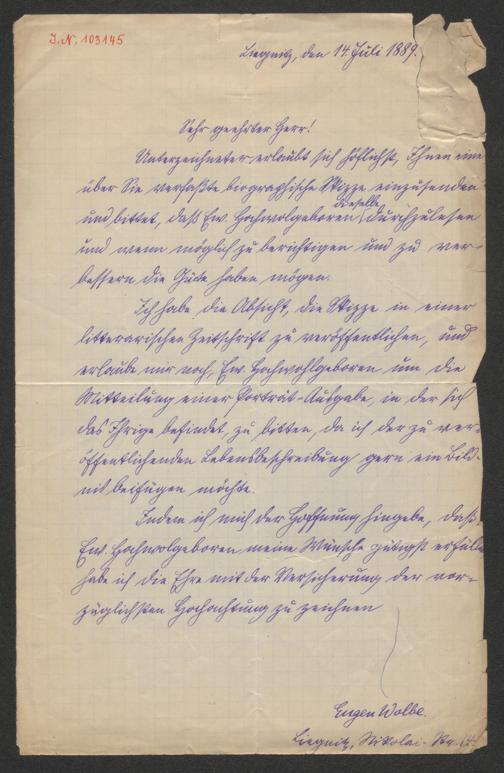 J. N. 103145
Liegnitz, den 14. Juli 1889.
Sehr geehrter Herr!
Unterzeichneter erlaubt sich höflichst, Ihnen eine
über Sie verfaßte biographische Skizze einzusenden
dieselbe
und bittet, daß Ew. Hochwolgeboren durchzulesen
und wenn möglich zu berichtigen und zu ver-
bessern die Güte haben mögen.
Ich habe die Absicht, die Skizze in einer
litterarischen Zeitschrift zu veröffentlichen, und
erlaube mir noch, Ew. Hochwohlgeboren um die
Mitteilung einer Porträt-Ausgabe, in der sich
das Ihrige befindet, zu bitten, da ich der zu ver-
öffentlichenden Lebensbeschreibung gern ein Bild-
nis beifügen möchte.
Indem ich mich der Hoffnung hingebe, daß
Ew. Hochwolgeboren meine Wünsche gütigst erfüllen
habe ich die Ehre mit der Versicherung der vor-
züglichsten Hochachtung zu zeichnen
Eugen Wolbe.
Liegnitz, Nikolai-Str.